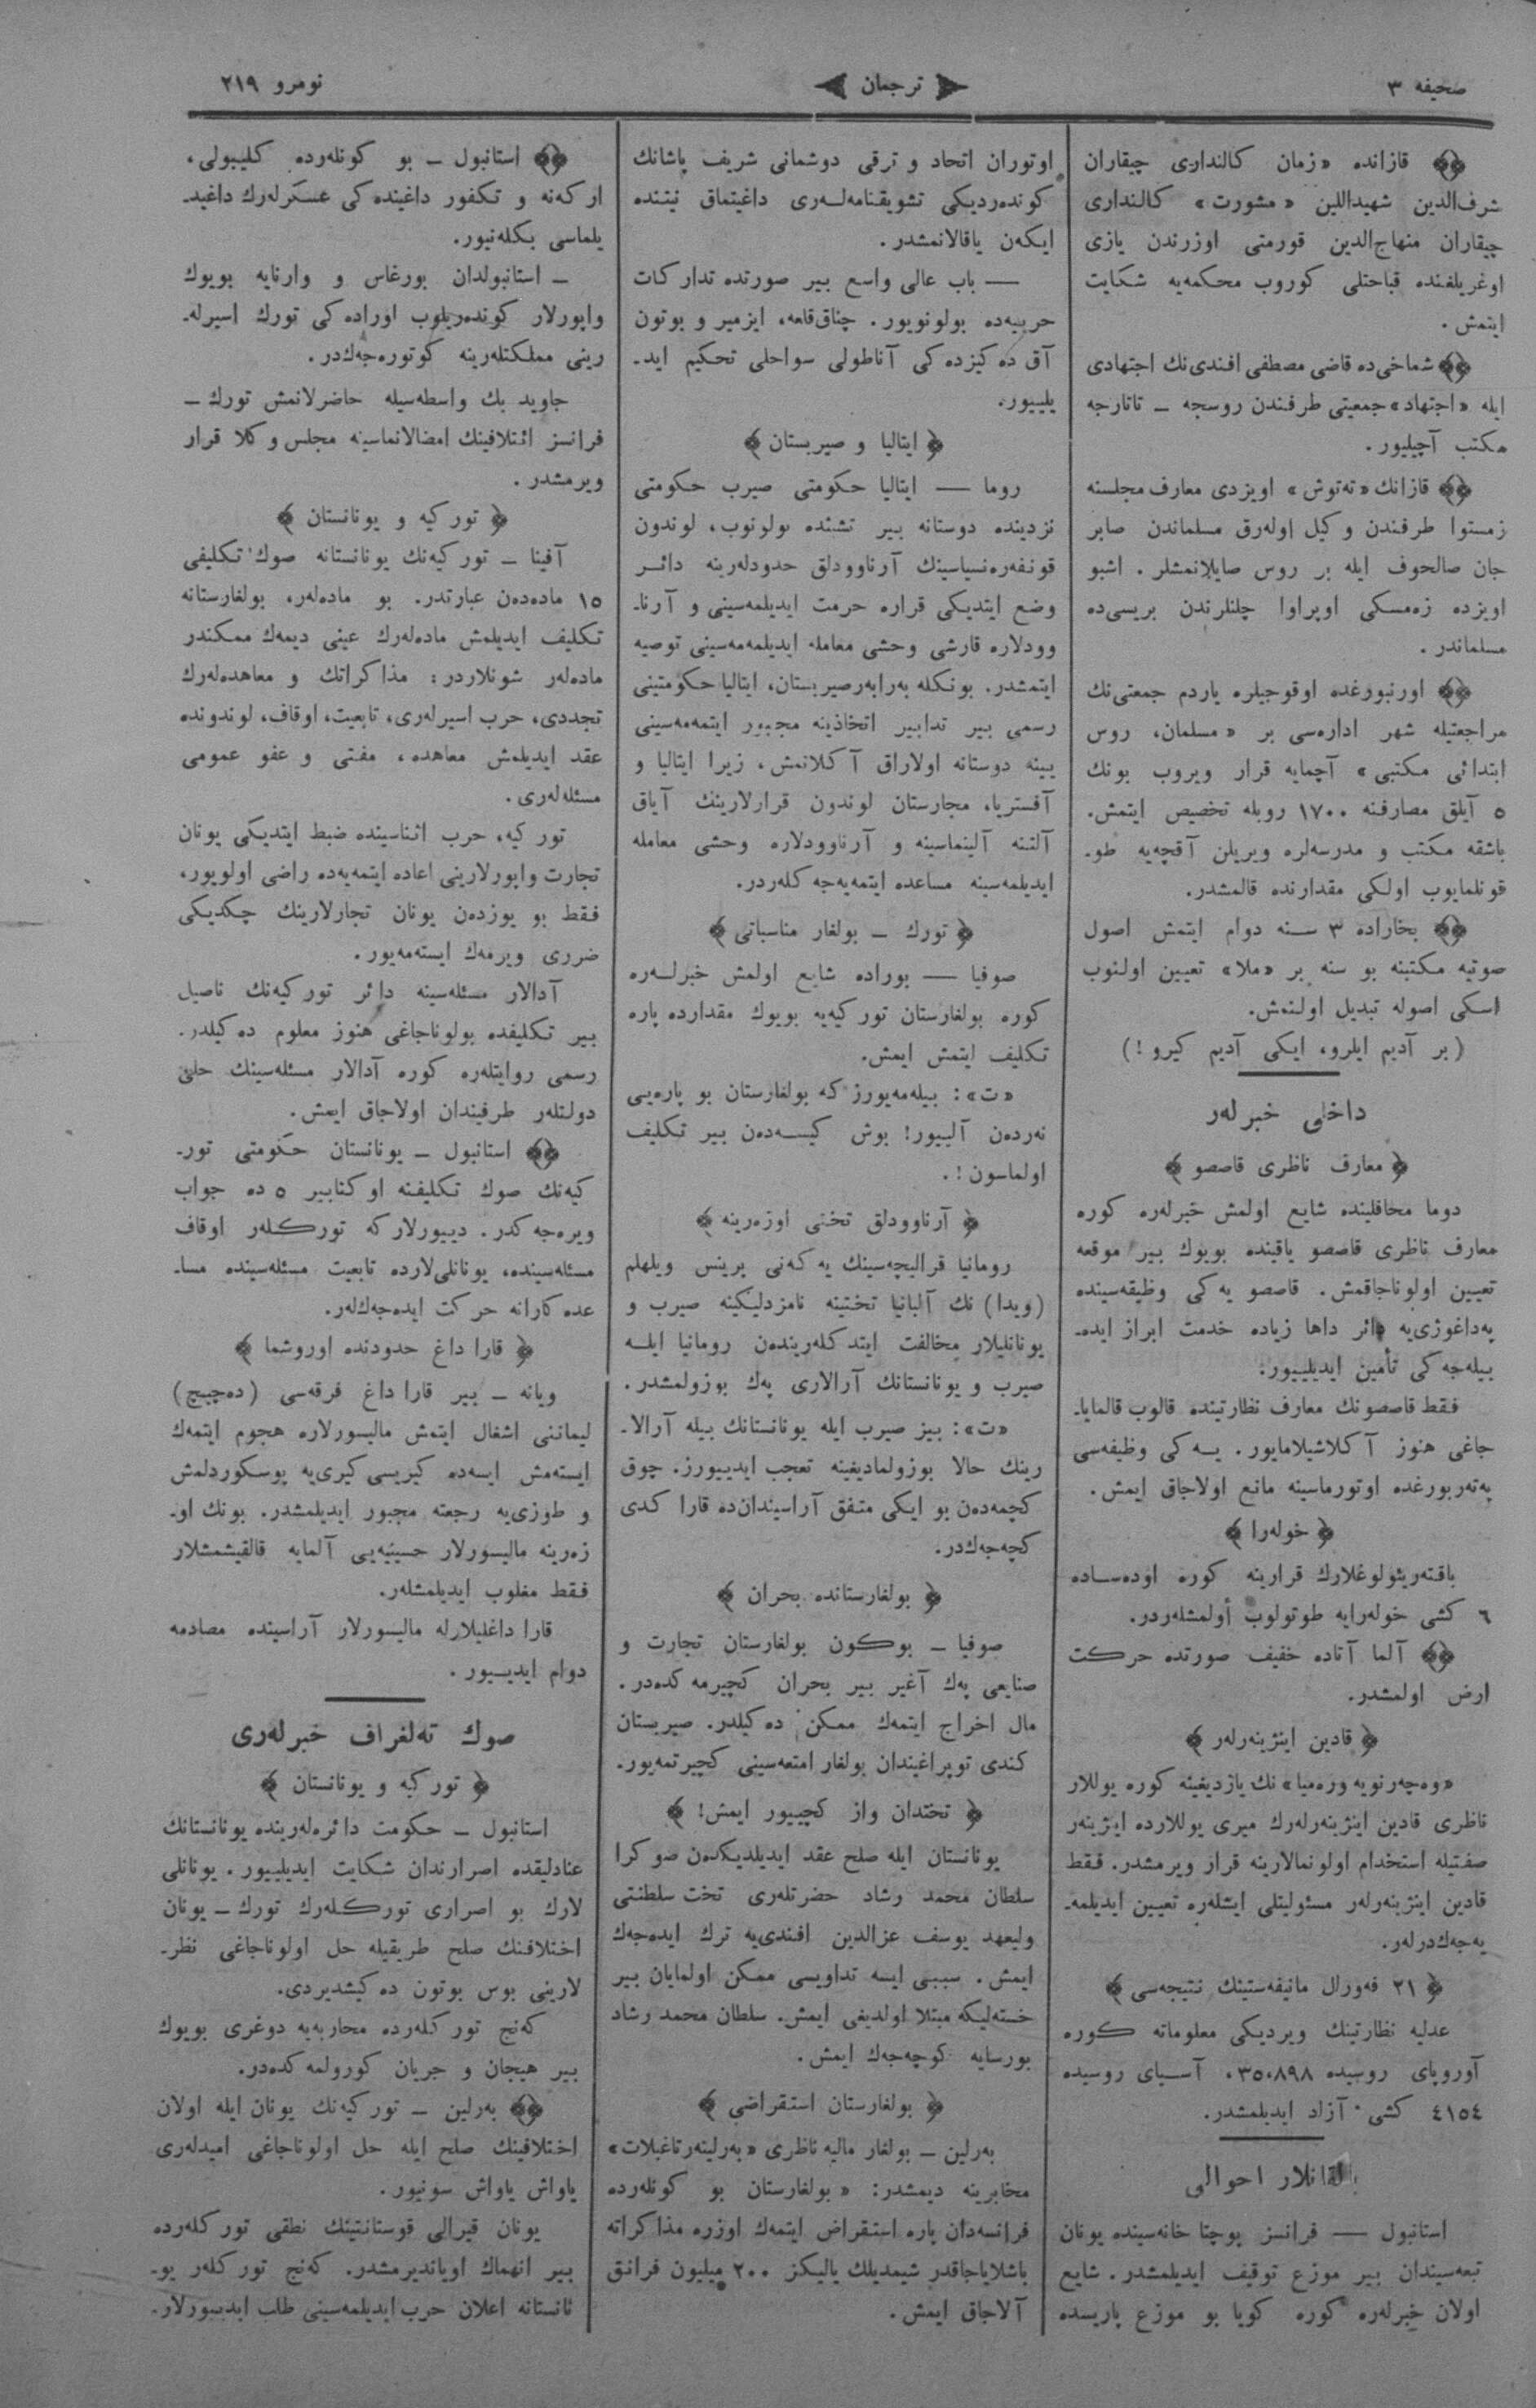 صحیفه ٣
ترجمان
نومرو ٢١٩
قازانده «زمان کالنداری چیقاران
شرف‌الدین شهیداللین «مشورت» کالنداری
چیقاران منهاج‌الدین قورمتی اوزرندن یازی
اوغریلغنده قباحتلی کوروب محکمه‌یه شکایت
ایتمش.
شماخی‌ده قاضی مصطفی افندی‌نك اجتهادی
ایله «اجتهاد» جمعیتی طرفندن روسجه ـ تاتارجه
مکتب آچیلیور.
قازانك «ته‌توش» اویزدی معارف مجلسنه
زمستوا طرفندن وکیل اوله‌رق مسلماندن صابر
جان صالحوف ایله بر روس صایلانمشلر. اشبو
اویزده زه‌مسکی اوپراوا چلنلرندن بریسی‌ده
مسلماندر.
اورنبورغده اوقوجیلره یاردم جمعتی‌نك
مراجعتیله شهر اداره‌سی بر «مسلمان، روس
ابتدائی مکتبی» آچمایه قرار ویروب بونك
٥ آیلق مصارفنه ١٧٠٠ روبله تخصیص ایتمش.
باشقه مکتب و مدرسه‌لره ویریلن آقچه‌یه طو-
قونلمایوب اولکی مقدارنده قالمشدر.
بخاراده ٣ سنه دوام ایتمش اصول
صوتیه مکتبنه بو سنه بر «ملا» تعیین اولنوب
اسکی اصوله تبدیل اولنمش.
(بر آدیم ایلرو، ایکی آدیم کیرو!)
داخلی خبرله‌ر
﴿معارف ناظری قاصصو﴾
دوما محافلینده شایع اولمش خبرله‌ره کوره
معارف ناظری قاصصو یاقینده بویوك بیر موقعه
تعیین اولوناجاقمش. قاصصو یه‌کی وظیفه‌سینده
په‌داغوژی‌یه دائر داها زیاده خدمت ابراز ایده-
بیله‌جه‌کی تأمین ایدیلییور.
فقط قاصصونك معارف نظارتینده قالوب قالمایا-
جاغی هنوز آکلاشیلامایور. یه‌کی وظیفه‌سی
په‌ته‌ربورغده اوتورماسینه مانع اولاجاق ایمش.
﴿خوله‌را﴾
باقته‌ریئولوغلارك قرارینه کوره اوده‌ساده
٦ کشی خوله‌رایه طوتولوب أولمشله‌ردر.
آلما آتاده خفیف صورتده حرکت
ارض اولمشدر.
﴿قادین اینژینه‌رله‌ر﴾
«وه‌چه‌رنویه وره‌میا» نك یازدیغینه کوره یوللار
ناظری قادین اینژینه‌رله‌رك میری یوللارده اینژینه‌ر
صفتیله استخدام اولونمالارینه قرار ویرمشدر. فقط
قادین اینژینه‌رله‌ر مسئولیتلی ایشله‌ره تعیین ایدیلمه-
یه‌جه‌كدرله‌ر.
﴿٢١ فه‌ورال مانیفه‌ستینك نتیجه‌سی﴾
عدلیه نظارتینك ویردیکی معلوماته کوره
آوروپای روسیده ٣٥،٨٩٨، آسیای روسیده
٤١٥٤ کشی آزاد ایدیلمشدر.
بالقانلار احوالی
استانبول — فرانسز پوچتا خانه‌سینده یونان
تبعه‌سیندان بیر موزع توقیف ایدیلمشدر. شایع
اولان خبرله‌ره کوره کویا بو موزع پاریسده
اوتوران اتحاد و ترقی دوشمانی شریف پاشانك
کونده‌ردیکی تشویقنامه‌لـه‌ری داغیتماق نیتنده
ایکه‌ن یاقالانمشدر.
— باب عالی واسع بیر صورتده تدارکات
حربیه‌ده بولونویور. چناق‌قلعه، ایزمیر و بوتون
آق ده‌کیزده‌کی آناطولی سواحلی تحکیم اید-
یلییور.
﴿ایتالیا و صیربستان﴾
روما — ایتالیا حکومتی صیرب حکومتی
نزدینده دوستانه بیر تشبثده بولونوب، لوندون
قونفه‌ره‌نسیاسینك آرناوودلق حدودله‌رینه دائـر
وضع ایتدیکی قراره حرمت ایدیلمه‌سینی و آرنا-
وودلاره قارشی وحشی معامله ایدیلمه‌مه‌سینی توصیه
ایتمشدر. بونکله به‌رابه‌ر صیربستان، ایتالیا حکومتینی
رسمی بیر تدابیر اتخاذینه مجبور ایتمه‌مه‌سینی
یینه دوستانه اولاراق آکلانمش، زیرا ایتالیا و
آفستریا، مجارستان لوندون قرارلارینك آیاق
آلتنه آلینماسینه و آرناوودلاره وحشی معامله
ایدیلمه‌سینه مساعده ایتمه‌یه‌جه‌کله‌ردر.
﴿تورك ـ بولغار مناسباتی﴾
صوفیا — بوراده شایع اولمش خبرلـه‌ره
کوره بولغارستان تورکیه‌یه بویوك مقدارده پاره
تکلیف ایتمش ایمش.
«ت»: بیله‌مه‌یورز که بولغارستان بو پاره‌یی
نه‌ردەن آلییور! بوش کیسه‌دەن بیر تکلیف
اولماسون!.
﴿آرناوودلق تختی اوزه‌رینه﴾
رومانیا قرالیچه‌سینك یه‌که‌نی پرینس ویلهلم
(ویدا) نك آلبانیا تختینه نامزدلیکینه صیرب و
یونانلیلار مخالفت ایتدکله‌ریندەن رومانیا ایلـه
صیرب و یونانستانك آرالاری په‌ك بوزولمشدر.
«ت»: بیز صیرب ایله یونانستانك بیله آرالا-
رینك حالا بوزولمادیغینه تعجب ایدییورز. چوق
کچمه‌دەن بو ایکی متفق آراسیندان‌ده قارا کدی
کچه‌جه‌كدر.
﴿بولغارستانده بحران﴾
صوفیا ـ بوکون بولغارستان تجارت و
صنایعی په‌ك آغیر بیر بحران کچیرمه‌کده‌در.
مال اخراج ایتمه‌ك ممکن ده‌کیلدر. صیربستان
کندی توپراغیندان بولغار امتعه‌سینی کچیرتمه‌یور.
﴿تختدان واز کچییور ایمش!﴾
یونانستان ایله صلح عقد ایدیلدیکدەن صوکرا
سلطان محمد رشاد حضرتله‌ری تخت سلطنتی
ولیعهد یوسف عزالدین افندی‌یه ترك ایده‌جه‌ك
ایمش. سببی ایسه تداویسی ممکن اولمایان بیر
خسته‌لیکه مبتلا اولدیغی ایمش. سلطان محمد رشاد
بورسایه کوچه‌جه‌ك ایمش.
﴿بولغارستان استقراضی﴾
به‌رلین ـ بولغار مالیه ناظری «به‌رلینه‌رتاغبلات»
مخابرینه دیمشدر: «بولغارستان بو کونله‌رده
فرانسه‌دان پاره استقراض ایتمه‌ك اوزره مذاکراته
باشلایاجاقدر شیمدیلك یالیکز ٢٠٠ میلیون فرانق
آلاجاق ایمش.
استانبول ـ بو کونله‌رده کلیبولی،
ارکه‌نه و تکفور داغینده‌کی عسکرله‌رك داغید-
یلماسی بکله‌نیور.
ـ استانبولدان بورغاس و وارنایه بویوك
واپورلار کونده‌ریلوب اوراده‌کی تورك اسیرله-
رینی مملکتله‌رینه کوتوره‌جه‌كدر.
جاوید بك واسطه‌سیله حاضرلانمش تورك ـ
فرانسز ائتلافینك امضالانماسینه مجلس وکلا قرار
ویرمشدر.
﴿تورکیه و یونانستان﴾
آفینا ـ تورکیه‌نك یونانستانه صوك تکلیفی
١٥ ماده‌دەن عبارتدر. بو ماده‌له‌ر، بولغارستانه
تکلیف ایدیلمش ماده‌له‌رك عینی دیمه‌ك ممکندر
ماده‌له‌ر شونلاردر: مذاکراتك و معاهده‌له‌رك
تجددی، حرب اسیرله‌ری، تابعیت، اوقاف، لوندونده
عقد ایدیلمش معاهده، مفتی و عفو عمومی
مسئله‌له‌ری.
تورکیه، حرب اثناسینده ضبط ایتدیکی یونان
تجارت واپورلارینی اعاده ایتمه‌یه‌ده راضی اولویور،
فقط بو یوزدەن یونان تجارلارینك چکدیکی
ضرری ویرمه‌ك ایسته‌مه‌یور.
آدالار مسئله‌سینه دائر تورکیه‌نك ناصیل
بیر تکلیفده بولوناجاغی هنوز معلوم ده‌کیلدر.
رسمی روایتله‌ره کوره آدالار مسئله‌سینك حلی
دولتله‌ر طرفیندان اولاجاق ایمش.
استانبول ـ یونانستان حکومتی تور-
کیه‌نك صوك تکلیفنه اوکتابیر ٥ ده جواب
ویره‌جه‌کدر. دییورلارکه تورکله‌ر اوقاف
مسئله‌سینده، یونانلی‌لارده تابعیت مسئله‌سینده مسا-
عده کارانه حرکت ایده‌جه‌كله‌ر.
﴿قارا داغ حدودنده اوروشما﴾
ویانه ـ بیر قارا داغ فرقه‌سی (ده‌چیچ)
لیماننی اشغال ایتمش مالیسورلاره هجوم ایتمه‌ك
ایسته‌مش ایسه‌ده کیریسی کیری‌یه پوسکوردلمش
و طوزی‌یه رجعته مجبور ایدیلمشدر. بونك او-
زه‌رینه مالیسورلار حسینیه‌یی آلمایه قالقیشمشلار
فقط مغلوب ایدیلمشله‌ر.
قارا داغلیلارله مالیسورلار آراسینده مصادمه
دوام ایدییور.
صوك ته‌لغراف خبرله‌ری
﴿تورکیه و یونانستان﴾
استانبول ـ حکومت دائره‌له‌رینده یونانستانك
عنادلیقده اصراراندان شکایت ایدیلییور. یونانلی
لارك بو اصراری تورکله‌رك تورك ـ یونان
اختلافنك صلح طریقیله حل اولوناجاغی نظر-
لارینی بوس بوتون ده‌کیشدیردی.
که‌نج تورکله‌رده محاربه‌یه دوغری بویوك
بیر هیجان و جریان کورولمه‌کده‌در.
به‌رلین ـ تورکیه‌نك یونان ایله اولان
اختلافینك صلح ایله حل اولوناجاغی امیدله‌ری
یاواش یاواش سونیور.
یونان قیرالی قوستانتینك نطقی تورکله‌رده
بیر انهماك اویاندیرمشدر. که‌نج تورکله‌ر یو-
نانستانه اعلان حرب ایدیلمه‌سینی طلب ایدییورلار.